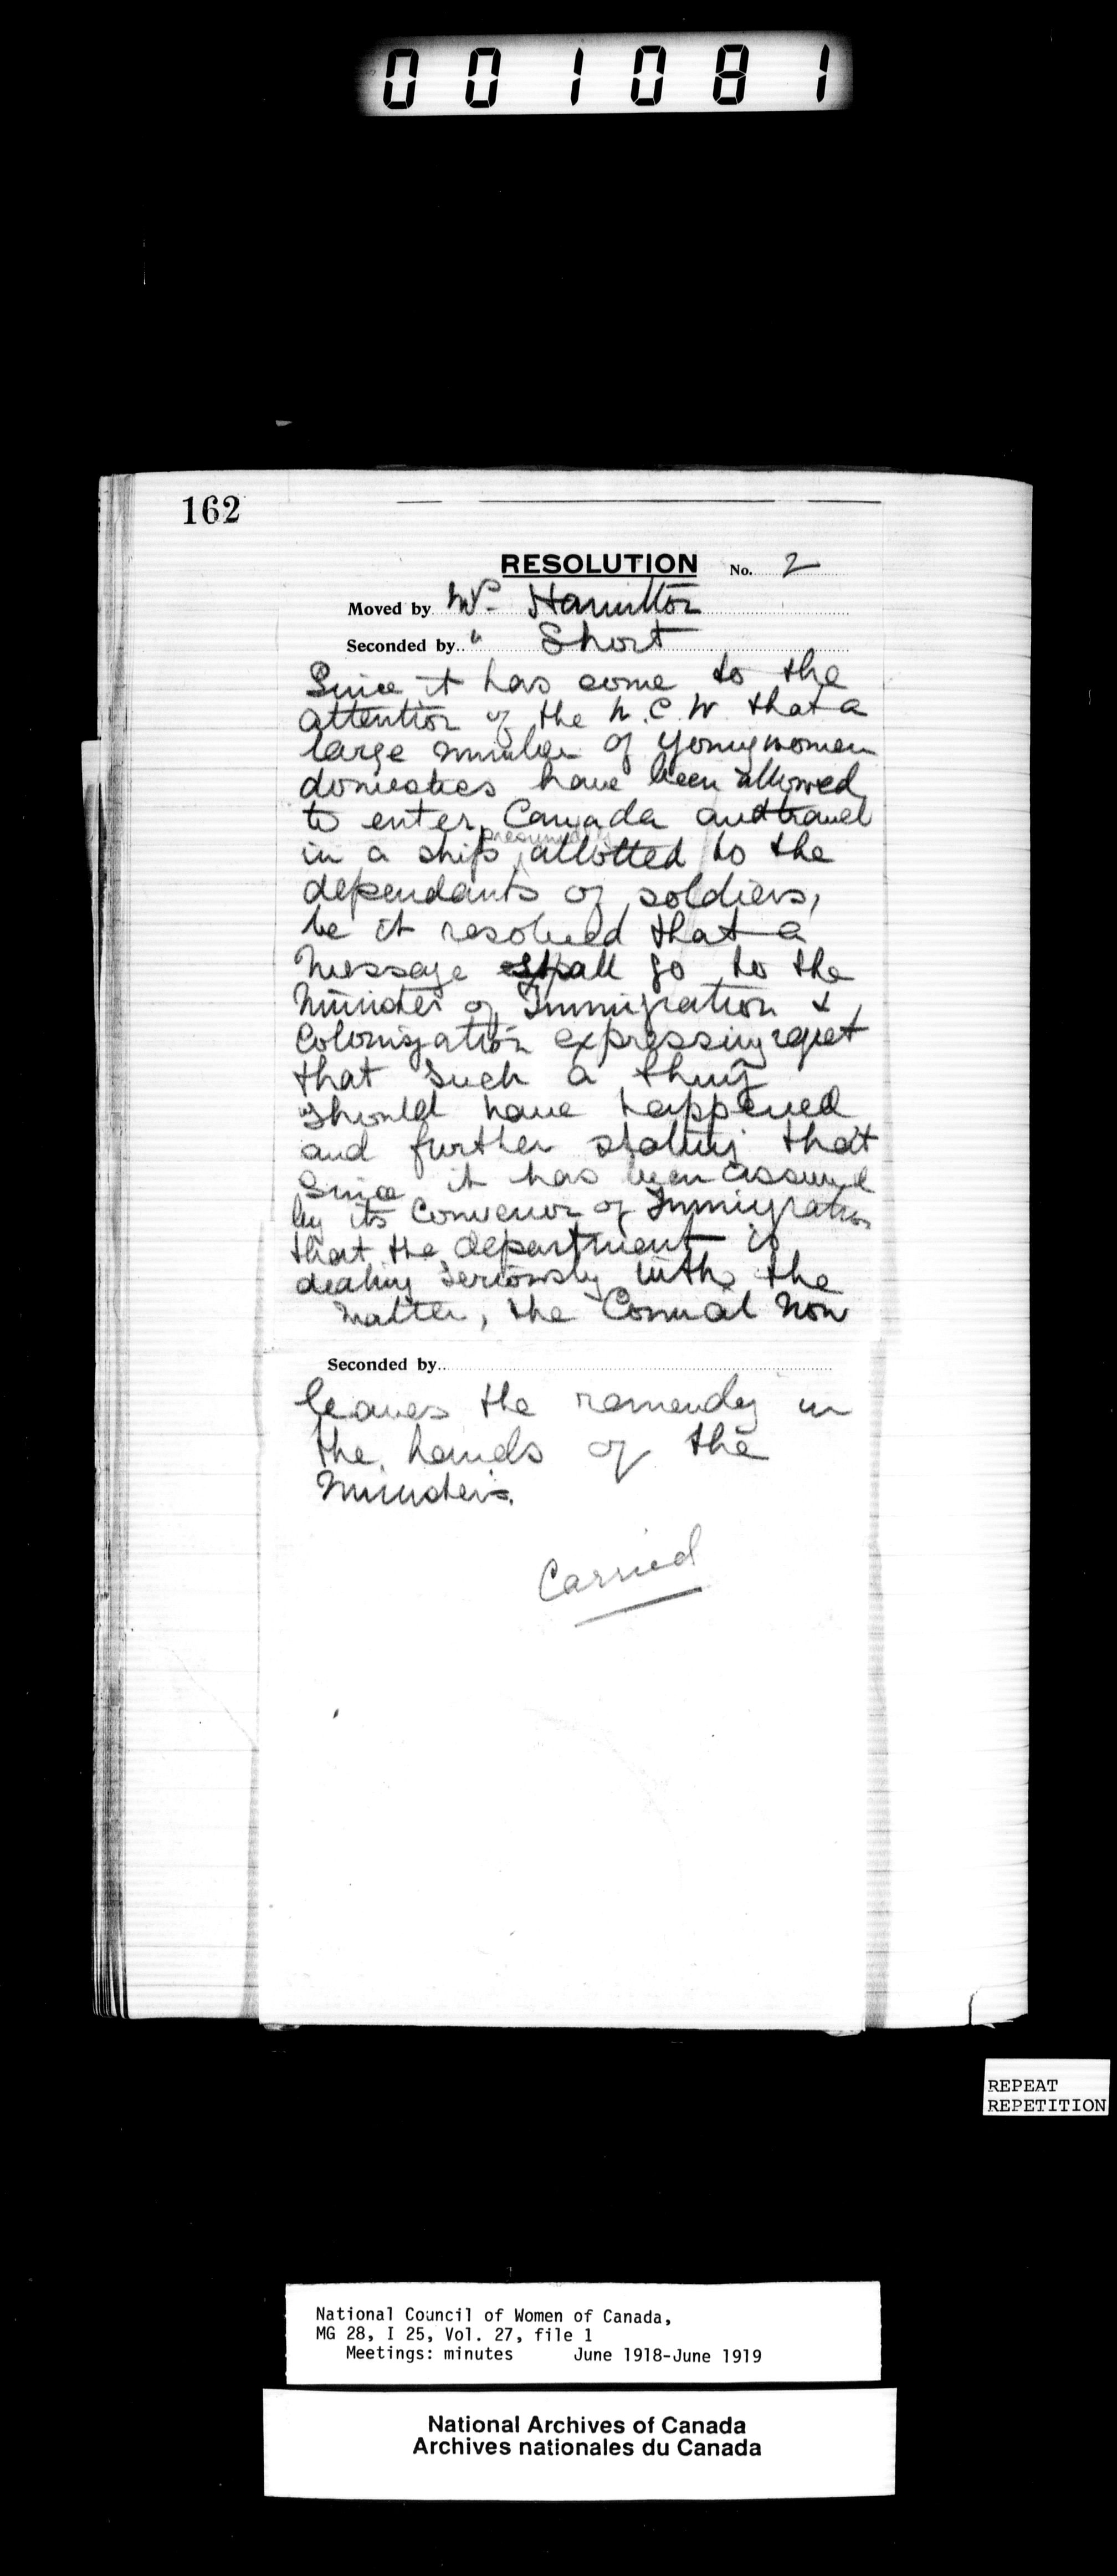 001081
162
RESOLUTION No. 2
Moved by Mrs. Hamilton
Seconded by " Short
Since it has come to the
attention of the N.C.W. that a
large number of young women
domestics have been allowed
to enter Canada and travel
presumably
in a ship allotted to the
dependants of soldiers,
be it resolved that a
message shall go to the
Minister of Immigration &
Colonization expressing regret
that such a thing
should have happened
and further stating that
since it has been assured
by its Convenor of Immigration
that the department is
dealing seriously with the
matter, the Council now
Seconded by
leaves the remendy in
the hands of the
Minister.
Carried
REPEAT
REPETITION
National Council of Women of Canada,
MG 28, I 25, Vol. 27, file 1
Meetings: minutes June 1918-June 1919
National Archives of Canada
Archives nationales du Canada